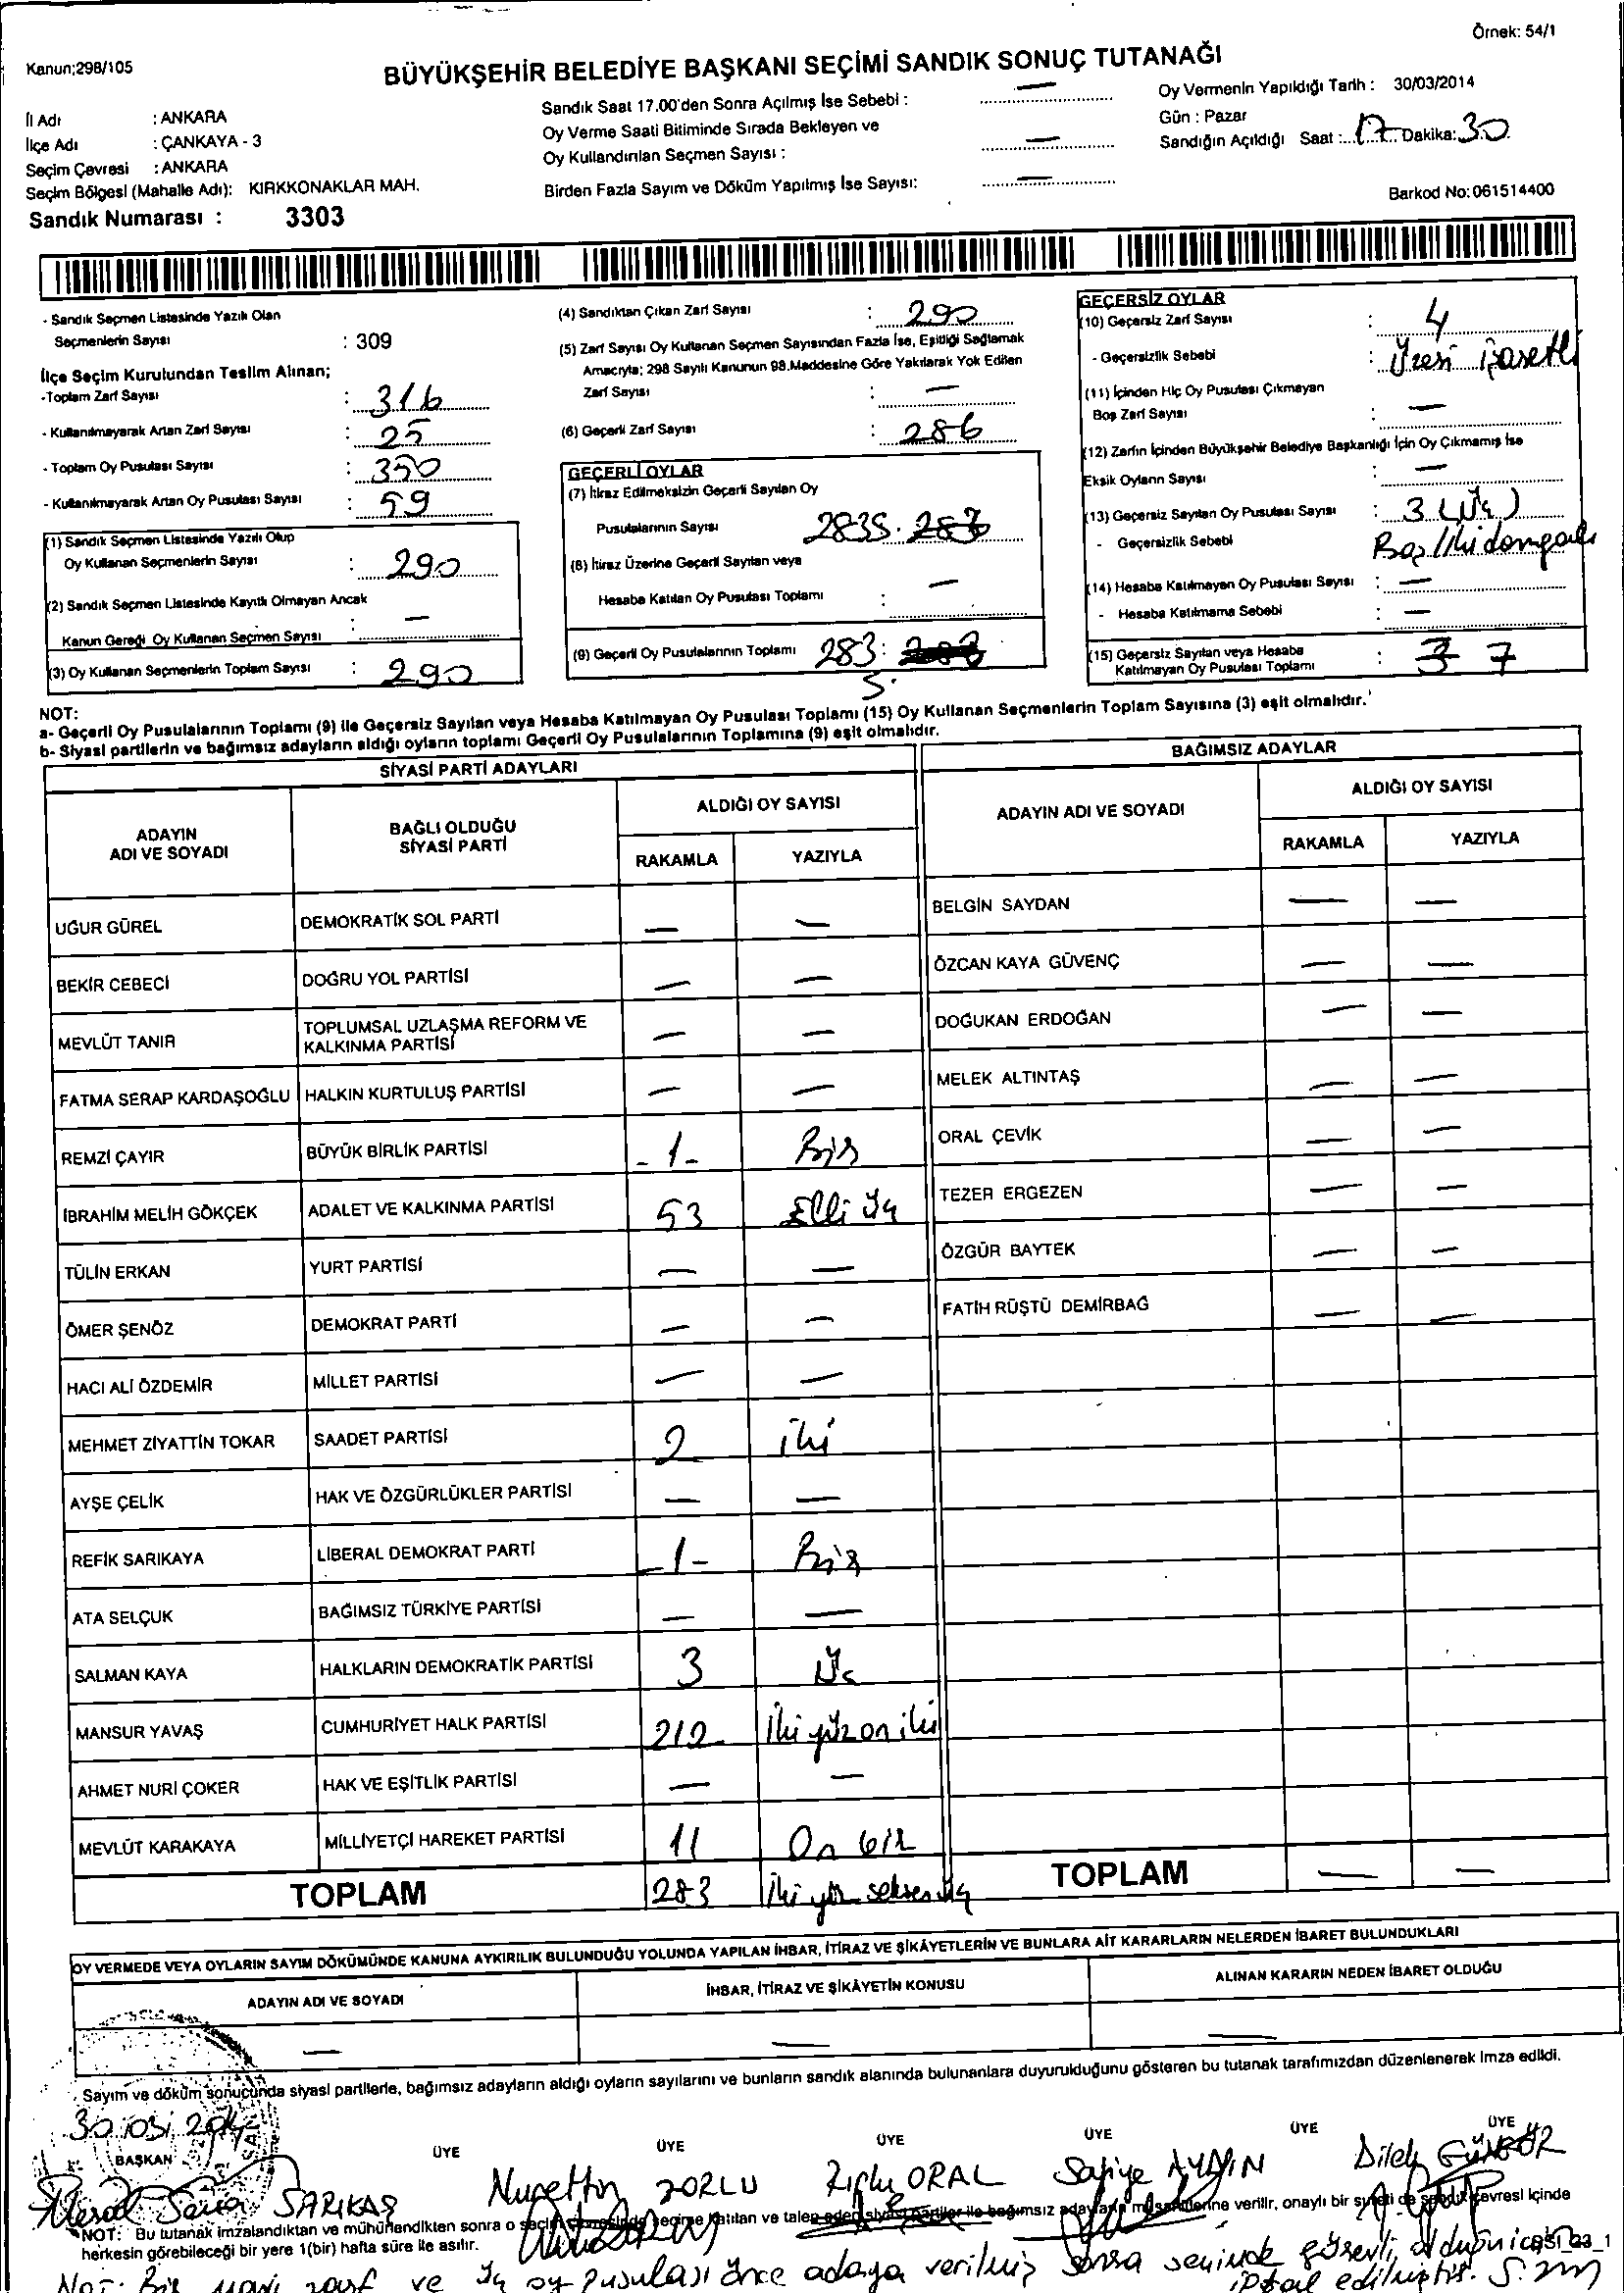 Örnek: 54/1
Kanun;298/105
BÜYÜKŞEHİR BELEDİYE BAŞKANI SEÇİMİ SANDIK SONUÇ TUTANAĞI
İl Adı : ANKARA
İlçe Adı : ÇANKAYA - 3
Seçim Çevresi : ANKARA
Seçim Bölgesi (Mahalle Adı): KIRKKONAKLAR MAH.
Sandık Numarası : 3303
Sandık Saat 17.00'den Sonra Açılmış İse Sebebi : —
Oy Verme Saati Bitiminde Sırada Bekleyen ve
Oy Kullandırılan Seçmen Sayısı : —
Birden Fazla Sayım ve Döküm Yapılmış İse Sayısı: —
Oy Vermenin Yapıldığı Tarih : 30/03/2014
Gün : Pazar
Sandığın Açıldığı Saat : 17 Dakika: 30
Barkod No: 061514400
- Sandık Seçmen Listesinde Yazılı Olan
Seçmenlerin Sayısı : 309
İlçe Seçim Kurulundan Teslim Alınan;
-Toplam Zarf Sayısı : 316
- Kullanılmayarak Artan Zarf Sayısı : 25
- Toplam Oy Pusulası Sayısı : 350
- Kullanılmayarak Artan Oy Pusulası Sayısı : 59
(1) Sandık Seçmen Listesinde Yazılı Olup
Oy Kullanan Seçmenlerin Sayısı : 290
(2) Sandık Seçmen Listesinde Kayıtlı Olmayan Ancak
Kanun Gereği Oy Kullanan Seçmen Sayısı : —
(3) Oy Kullanan Seçmenlerin Toplam Sayısı : 290
(4) Sandıktan Çıkan Zarf Sayısı : 290
(5) Zarf Sayısı Oy Kullanan Seçmen Sayısından Fazla İse, Eşitliği Sağlamak
Amacıyla; 298 Sayılı Kanunun 98.Maddesine Göre Yakılarak Yok Edilen
Zarf Sayısı : —
(6) Geçerli Zarf Sayısı : 286
GEÇERLİ OYLAR
(7) İtiraz Edilmeksizin Geçerli Sayılan Oy
Pusulalarının Sayısı 283S. 287
(8) İtiraz Üzerine Geçerli Sayılan veya
Hesaba Katılan Oy Pusulası Toplamı : —
(9) Geçerli Oy Pusulalarının Toplamı 283:
S.
GEÇERSİZ OYLAR
(10) Geçersiz Zarf Sayısı : 4
- Geçersizlik Sebebi : Üzeri işaretli
(11) İçinden Hiç Oy Pusulası Çıkmayan
Boş Zarf Sayısı : —
(12) Zarfın İçinden Büyükşehir Belediye Başkanlığı İçin Oy Çıkmamış İse
Eksik Oyların Sayısı : —
(13) Geçersiz Sayılan Oy Pusulası Sayısı : 3 (Üç)
- Geçersizlik Sebebi Boş/İki damgalı
(14) Hesaba Katılmayan Oy Pusulası Sayısı : —
- Hesaba Katılmama Sebebi : —
(15) Geçersiz Sayılan veya Hesaba
Katılmayan Oy Pusulası Toplamı : 3 7
NOT:
a- Geçerli Oy Pusulalarının Toplamı (9) ile Geçersiz Sayılan veya Hesaba Katılmayan Oy Pusulası Toplamı (15) Oy Kullanan Seçmenlerin Toplam Sayısına (3) eşit olmalıdır.
b- Siyasi partilerin ve bağımsız adayların aldığı oyların toplamı Geçerli Oy Pusulalarının Toplamına (9) eşit olmalıdır.
SİYASİ PARTİ ADAYLARI
ADAYIN ADI VE SOYADI BAĞLI OLDUĞU SİYASİ PARTİ ALDIĞI OY SAYISI
RAKAMLA YAZIYLA
UĞUR GÜREL DEMOKRATİK SOL PARTİ — —
BEKİR CEBECİ DOĞRU YOL PARTİSİ — —
MEVLÜT TANIR TOPLUMSAL UZLAŞMA REFORM VE KALKINMA PARTİSİ — —
FATMA SERAP KARDAŞOĞLU HALKIN KURTULUŞ PARTİSİ — —
REMZİ ÇAYIR BÜYÜK BİRLİK PARTİSİ -1- Bir
İBRAHİM MELİH GÖKÇEK ADALET VE KALKINMA PARTİSİ 53 Elli üç
TÜLİN ERKAN YURT PARTİSİ — —
ÖMER ŞENÖZ DEMOKRAT PARTİ — —
HACI ALİ ÖZDEMİR MİLLET PARTİSİ — —
MEHMET ZİYATTİN TOKAR SAADET PARTİSİ 2 iki
AYŞE ÇELİK HAK VE ÖZGÜRLÜKLER PARTİSİ — —
REFİK SARIKAYA LİBERAL DEMOKRAT PARTİ -1- Bir
ATA SELÇUK BAĞIMSIZ TÜRKİYE PARTİSİ — —
SALMAN KAYA HALKLARIN DEMOKRATİK PARTİSİ 3 Üç
MANSUR YAVAŞ CUMHURİYET HALK PARTİSİ 212 İki yüz on iki
AHMET NURİ ÇOKER HAK VE EŞİTLİK PARTİSİ — —
MEVLÜT KARAKAYA MİLLİYETÇİ HAREKET PARTİSİ 11 On bir
TOPLAM 283 İki yüz seksen üç
BAĞIMSIZ ADAYLAR
ADAYIN ADI VE SOYADI ALDIĞI OY SAYISI
RAKAMLA YAZIYLA
BELGİN SAYDAN — —
ÖZCAN KAYA GÜVENÇ — —
DOĞUKAN ERDOĞAN — —
MELEK ALTINTAŞ — —
ORAL ÇEVİK — —
TEZER ERGEZEN — —
ÖZGÜR BAYTEK — —
FATİH RÜŞTÜ DEMİRBAĞ — —
TOPLAM — —
OY VERMEDE VEYA OYLARIN SAYIM DÖKÜMÜNDE KANUNA AYKIRILIK BULUNDUĞU YOLUNDA YAPILAN İHBAR, İTİRAZ VE ŞİKÂYETLERİN VE BUNLARA AİT KARARLARIN NELERDEN İBARET BULUNDUKLARI
ADAYIN ADI VE SOYADI İHBAR, İTİRAZ VE ŞİKÂYETİN KONUSU ALINAN KARARIN NEDEN İBARET OLDUĞU
— — —
Sayım ve döküm sonucunda siyasi partilerle, bağımsız adayların aldığı oyların sayılarını ve bunların sandık alanında bulunanlara duyurulduğunu gösteren bu tutanak tarafımızdan düzenlenerek imza edildi.
30.03.2014
BAŞKAN ÜYE ÜYE ÜYE ÜYE ÜYE ÜYE
SARIKAŞ Nurettin ZORLU ORAL Safiye AYDIN Dilek GÜNGÖR
NOT: Bu tutanak imzalandıktan ve mühürlendikten sonra o seçim çevresinde seçime katılan ve talep eden siyasi partiler ile bağımsız adayların müşahitlerine verilir, onaylı bir sureti de sandık çevresi içinde
herkesin görebileceği bir yere 1(bir) hafta süre ile asılır.
Not: Bir zarf ve üç oy pusulası önce adaya verilmiş sonra görevli olduğu için iptal edilmiştir.